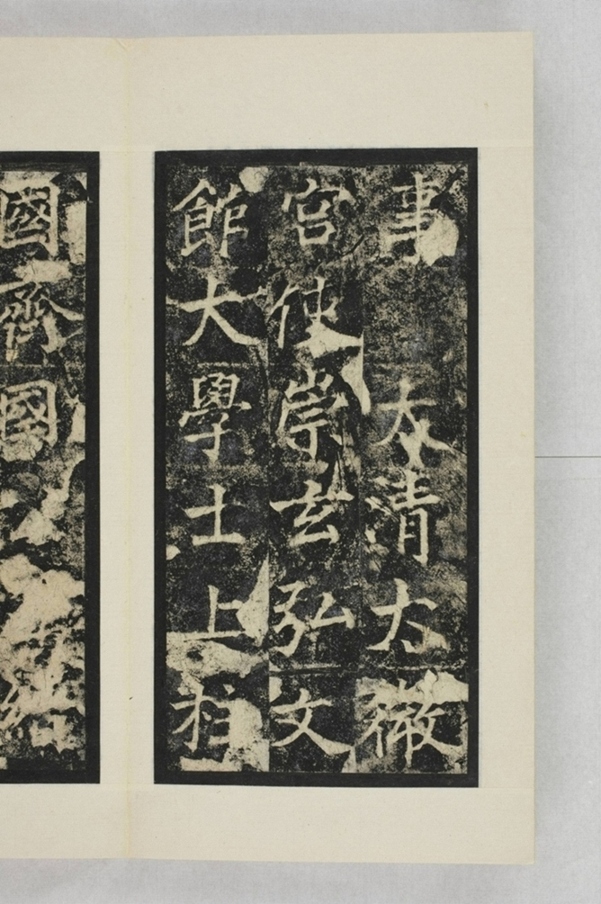 事 太清太微
宮使崇玄弘文
館大學士上柱
國齊國